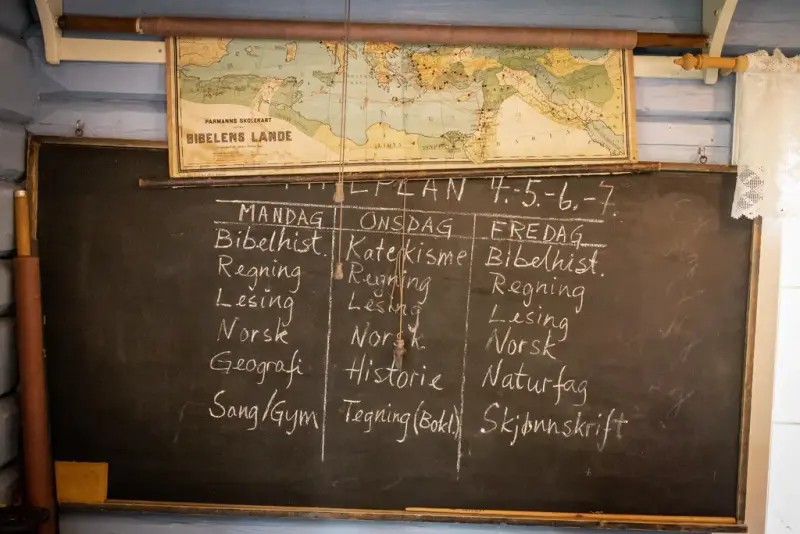 PARMANNS SKOLEKART
BIBELENS LANDE
PLAN 4.-5.-6.-7.
MANDAG ONSDAG FREDAG
Bibelhist. Katekisme Bibelhist.
Regning Regning Regning
Lesing Lesing Lesing
Norsk Norsk Norsk
Geografi Historie Naturfag
Sang/Gym Tegning (Bokl.) Skjønnskrift